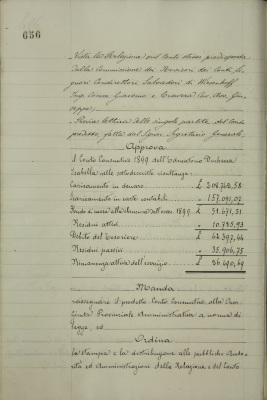 656
Vista la Relazione sul Conto stesso predisposta
dalla Commissione dei Revisori dei Conti, Si-
gnori Condirettori Salvadori di Wiesenhoff
Ing. Conte Giacomo e Cav. Avv. Giu-
seppe;
Previa lettura delle singole partite del Conto
predetto, fatta dal Signor Segretario Generale,
Approva
il Conto Consuntivo 1899 dell'Educatorio Duchessa
Isabella nelle sottodescritte risultanze:
Caricamento in denaro £
Scaricamento in carte contabili " 157.091,02
Fondo di cassa alla chiusura dell'eserc. 1899 £ 51.671,51
Residui attivi "
Debito del Tesoriere £ 62.397,44
Residui passivi "
Rimanenza attiva dell'esercizio £
Manda
rassegnare il predetto Conto Consuntivo alla
Giunta Provinciale Amministrativa a norma di
legge, ed
Ordina
la stampa e la distribuzione alle pubbliche Auto-
rità ed Amministrazioni della Relazione e del Conto